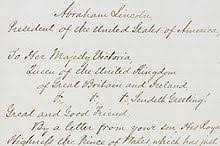 Abraham Lincoln,
President of the United States of America
To Her Majesty Victoria
Queen of the United Kingdom
of Great Britain and Ireland,
&c. &c. &c. Sendeth Greeting.
Great and Good Friend,
By a letter from your son, His Royal
Highness the Prince of Wales, which has just